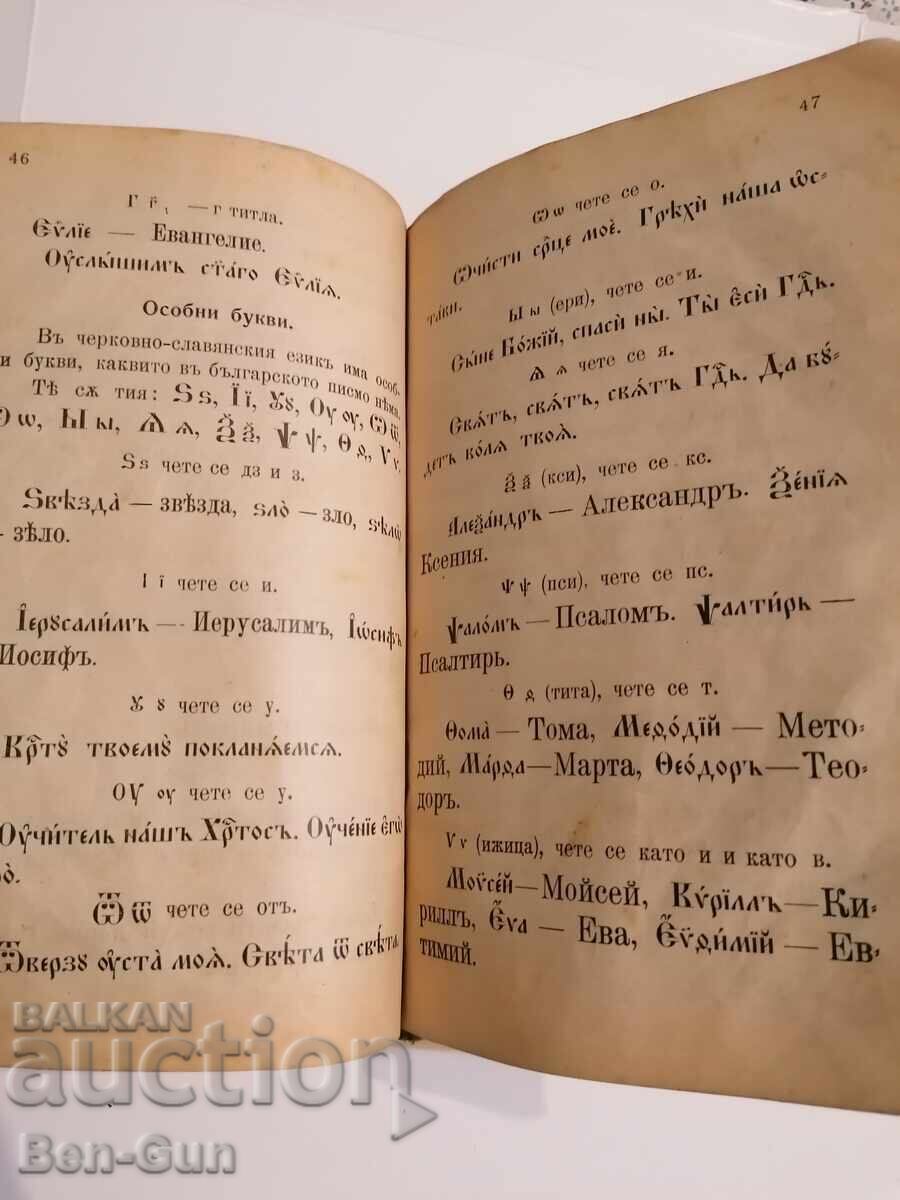 46
Г г҃ , —г титла.
Є҆ѵⷢ҇лїе — Евангелие.
Оу҆слы́шимъ ст҃а́го Є҆ѵⷢ҇лїѧ.
Особни букви.
Въ черковно-славянския езикъ има особ-
и букви, каквито въ българското писмо нѣма.
Тѣ сѫ тия: Ѕѕ, Її, Ꙋꙋ, Оу оу, Ѿѿ,
Ѡѡ, Ыы, Ѧѧ, Ѯѯ, Ѱѱ, Ѳѳ, Ѵѵ.
Ѕѕ чете се дз и з.
Ѕвѣзда̀ — звѣзда, ѕло̀ — зло, ѕѣлѡ̀
- зѣло.
І ї чете се и.
І҆ерꙋсали́мъ — Иерусалимъ, І҆ѡ́сифъ
Иосифъ.
Ꙋ ꙋ чете се у.
Крⷭ҇тꙋ̀ твоемꙋ̀ покланѧ́емсѧ.
ОУ оу чете се у.
Оу҆чи́тель на́шъ Хрⷭ҇то́съ. Оу҆че́нїе є҆гѡ̀
Ѿ ѿ чете се отъ.
Ѿверзꙋ̀ оу҆ста̀ моѧ̑. Свѣ́та ѿ свѣ́та.
47
Ѡѡ чете се о.
Ѡ҆чи́сти срⷣце моѐ. Грѣхѝ на́ша ѡ҆с-
та́ви.
Ы ы (ери), чете се и.
Сы́не Бо́жїй, спасѝ ны̀. Ты̀ є҆сѝ Гдⷭ҇ь.
Ѧ ѧ чете се я.
Свѧ́тъ, свѧ́тъ, свѧ́тъ Гдⷭ҇ь. Да бꙋ́-
детъ во́лѧ твоѧ̀.
Ѯ ѯ (кси), чете се кс.
Алеѯа́ндръ — Александръ. Ѯе́нїѧ
Ксения.
Ѱ ѱ (пси), чете се пс.
Ѱало́мъ — Псаломъ. Ѱалти́рь —
Псалтирь.
Ѳ ѳ (тита), чете се т.
Ѳома̀ — Тома, Меѳо́дїй — Мето-
дий, Ма́рѳа—Марта, Ѳео́доръ—Тео-
доръ.
Ѵѵ (ижица), чете се като и и като в.
Моѷсе́й—Мойсей, Кѵ́рїллъ—Ки-
риллъ, Є҆́ѵа — Ева, Є҆ѵѳи́мїй — Ев-
тимий.
BALKAN
auction
Ben-Gun